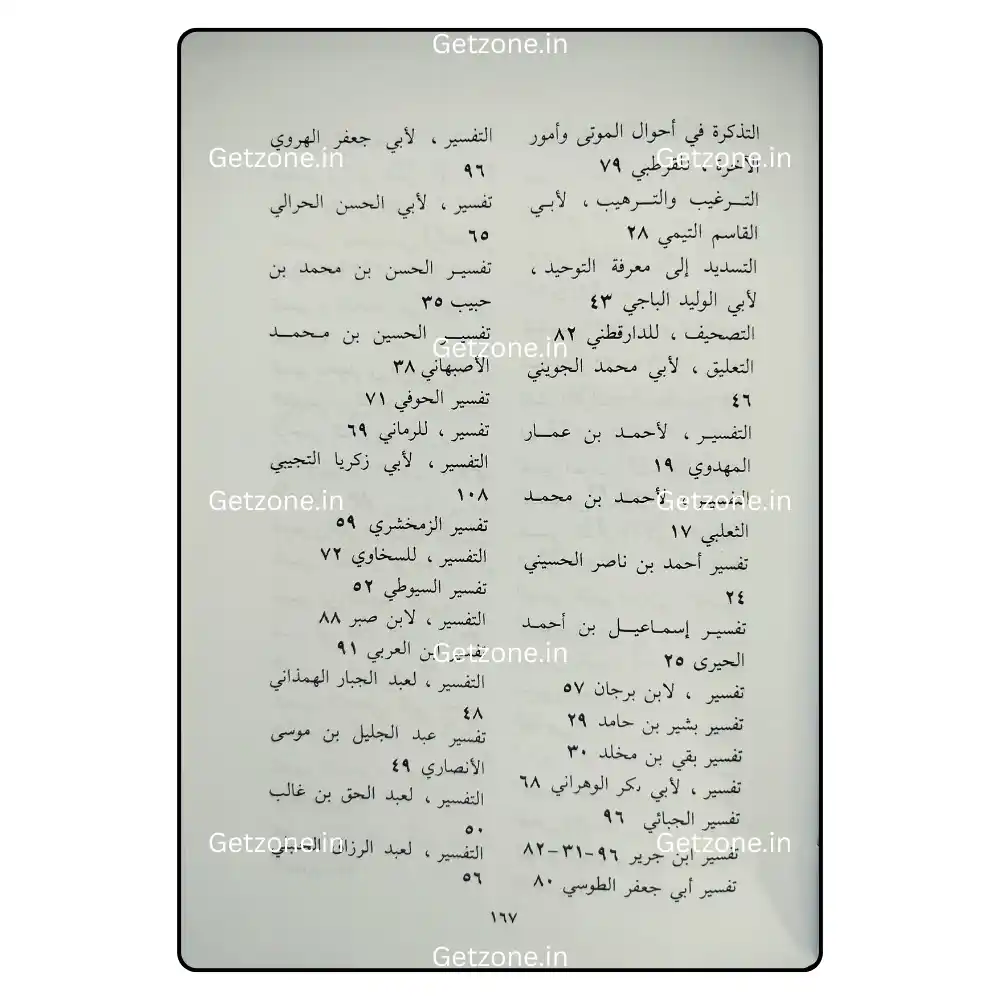 Getzone.in
التذكرة في أحوال الموتى وأمور
الآخرة ، للقرطبي ٧٩
التـرغيب والتـرهيب ، لأبـي
القاسم التيمي ٢٨
التسديد إلى معرفة التوحيد ،
لأبي الوليد الباجي ٤٣
التصحيف ، للدارقطني ٨٢
التعليق ، لأبي محمد الجويني
٤٦
التفسيـر ، لأحمـد بن عمـار
المهدوي ١٩
التفسيـر ، لأحمـد بن محمـد
الثعلبي ١٧
تفسير أحمد بن ناصر الحسيني
٢٤
تفسيـر إسمـاعيـل بن أحمـد
الحيرى ٢٥
تفسير ، لابن برجان ٥٧
تفسير بشير بن حامد ٢٩
تفسير بقي بن مخلد ٣٠
تفسير ، لأبي بكر الوهراني ٦٨
تفسير الجبائي ٩٦
تفسير ابن جرير ٩٦-٣١-٨٢
تفسير أبي جعفر الطوسي ٨٠
التفسير ، لأبي جعفر الهروي
٩٦
تفسير ، لأبي الحسن الحرالي
٦٥
تفسيـر الحسن بن محمد بن
حبيب ٣٥
تفسيـر الحسين بن محمـد
الأصبهاني ٣٨
تفسير الحوفي ٧١
تفسير ، للرماني ٦٩
التفسير ، لأبي زكريا التجيبي
١٠٨
تفسير الزمخشري ٥٩
التفسير ، للسخاوي ٧٢
تفسير السيوطي ٥٢
التفسير ، لابن صبر ٨٨
تفسير ابن العربي ٩١
التفسير ، لعبد الجبار الهمذاني
٤٨
تفسير عبد الجليل بن موسى
الأنصاري ٤٩
التفسير ، لعبد الحق بن غالب
٥٠
التفسير ، لعبد الرزاق الحنبلي
٥٦
١٦٧
Getzone.in
Getzone.in
Getzone.in
Getzone.in
Getzone.in
Getzone.in
Getzone.in
Getzone.in
Getzone.in
Getzone.in